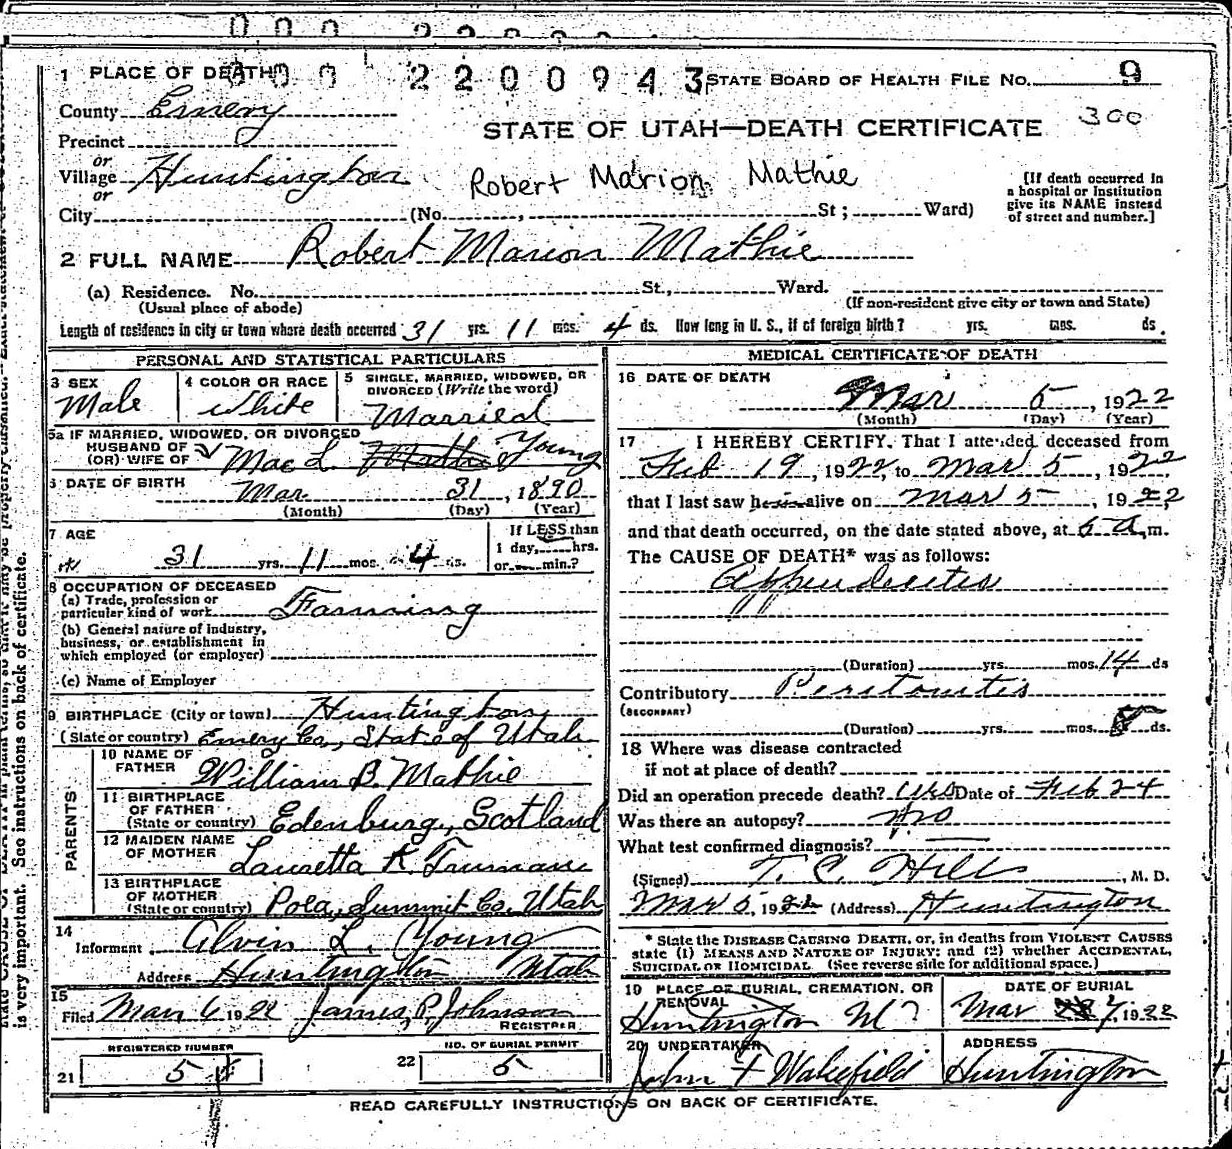 000 2200943
1 PLACE OF DEATH
STATE BOARD OF HEALTH FILE NO. 9
County Emery
300
STATE OF UTAH—DEATH CERTIFICATE
Precinct
or
Village Huntington
or
Robert Marion Mathie
[If death occurred in
a hospital or institution
give its NAME instead
of street and number.]
City (No. , St; Ward)
2 FULL NAME Robert Marion Mathie
(a) Residence. No. St., Ward.
(Usual place of abode) (If non-resident give city or town and State)
Length of residence in city or town where death occurred 31 yrs. 11 mos. 4 ds. How long in U. S., if of foreign birth? yrs. mos. ds.
PERSONAL AND STATISTICAL PARTICULARS
3 SEX
Male
4 COLOR OR RACE
White
5 SINGLE, MARRIED, WIDOWED, OR
DIVORCED (Write the word)
Married
5a IF MARRIED, WIDOWED, OR DIVORCED
HUSBAND OF
(OR) WIFE OF Mae L. Mathie Young
6 DATE OF BIRTH Mar 31, 1890
(Month) (Day) (Year)
7 AGE
31 yrs. 11 mos. 4 ds.
If LESS than
1 day, hrs.
or min.?
8 OCCUPATION OF DECEASED
(a) Trade, profession or
particular kind of work Farming
(b) General nature of industry,
business, or establishment in
which employed (or employer)
(c) Name of Employer
9 BIRTHPLACE (City or town) Huntington
(State or country) Emery Co., State of Utah
PARENTS
10 NAME OF
FATHER William B. Mathie
11 BIRTHPLACE
OF FATHER
(State or country) Edenburg, Scotland
12 MAIDEN NAME
OF MOTHER Lauretta K. Truman
13 BIRTHPLACE
OF MOTHER
(State or country) Poca, Summit Co. Utah
14
Informent Alvin L. Young
Address Huntington Utah
15
Filed Mar 6 1922 James P. Johnson
REGISTRER
REGISTERED NUMBER
21 5
NO. OF BURIAL PERMIT
22 5
MEDICAL CERTIFICATE OF DEATH
16 DATE OF DEATH
Mar 5, 1922
(Month) (Day) (Year)
17 I HEREBY CERTIFY. That I attended deceased from
Feb 19, 1922, to Mar 5, 1922
that I last saw him alive on Mar 5, 1922,
and that death occurred, on the date stated above, at 5 A.m.
The CAUSE OF DEATH* was as follows:
Appendicitis
(Duration) yrs. mos. 14 ds
Contributory Peritonitis
(SECONDARY)
(Duration) yrs. mos. 8 ds.
18 Where was disease contracted
if not at place of death?
Did an operation precede death? Yes Date of Feb 24
Was there an autopsy? No
What test confirmed diagnosis?
(Signed) T. C. Hill, M. D.
Mar 5, 1922 (Address) Huntington
* State the DISEASE CAUSING DEATH, or, in deaths from VIOLENT CAUSES
state (1) MEANS AND NATURE OF INJURY; and (2) whether ACCIDENTAL,
SUICIDAL OR HOMICIDAL (See reverse side for additional space.)
19 PLACE OF BURIAL, CREMATION, OR
REMOVAL
Huntington
DATE OF BURIAL
Mar 7, 1922
20 UNDERTAKER
John F Wakefield
ADDRESS
Huntington
READ CAREFULLY INSTRUCTIONS ON BACK OF CERTIFICATE.
is very important. See instructions on back of certificate.